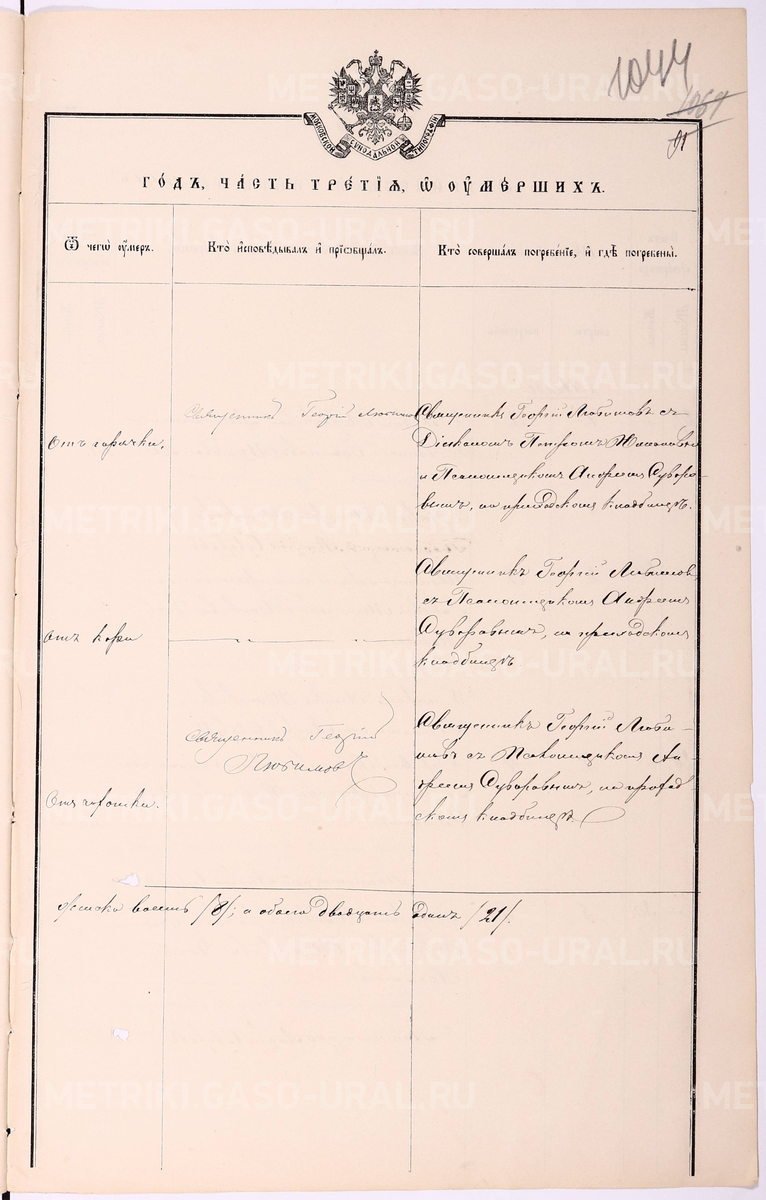 1044
1069
91
МОСКОВСКОЙ СѴНОДАЛЬНОЙ ТИПОГРАФІИ
ГО́ДЪ, ЧА́СТЬ ТРЕ́ТІѦ, Ѡ҆ ОУ҆МЕ́РШИХЪ.
Ѿ чегѡ̀ оу҆́меръ.
Кто̀ и҆сповѣ́дывалъ и҆ прїѡбща́лъ.
Кто̀ соверша́лъ погребе́нїе, и҆ гдѣ̀ погребены̀.
Отъ горячки.
Священникъ Георгій Любимовъ
Священникъ Георгій Любимовъ съ
Діакономъ Петромъ
и Псаломщикомъ Андреемъ Суворо-
вымъ, на приходскомъ кладбищѣ.
Отъ кори
Священникъ Георгій Любимовъ
съ Псаломщикомъ Андреемъ
Суворовымъ, на приходскомъ
кладбищѣ
Отъ горячки.
Священникъ Георгій
Любимовъ
Священникъ Георгій Люби-
мовъ съ Псаломщикомъ Ан-
дреемъ Суворовымъ, на приход
скомъ кладбищѣ
женска восемь /8/; а обоего двадцать одинъ /21/.
METRIKI.GASO-URAL.RU